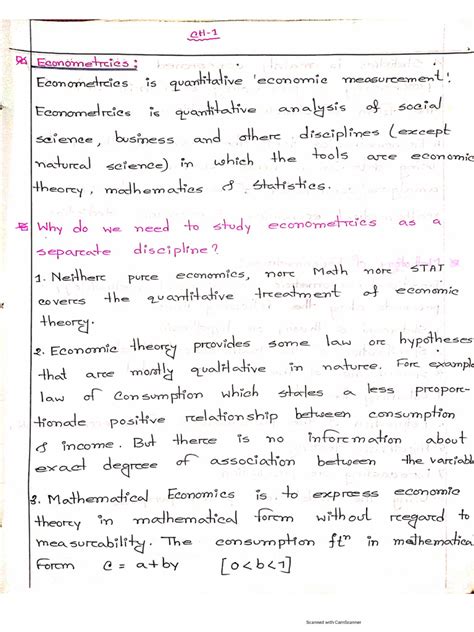 CH-1
Econometrcics:
Econometrcics is quantitative 'economic measurcement'.
Econometrcics is quantitative analysis of social
science, business and otherc disciplines (except
naturcal science) in which the tools arce economic
theorcy, mathematics & Statistics.
Why do we need to study econometrcics as a
separcate discipline?
1. Neitherc purce economics, norc Math norc STAT
coverc the quantitative trceatment of economic
theorcy.
2. Economic theorcy prcovides some law orc hypotheses
that arce mostly qualitative in naturce. Forc example
law of Consumption which states a less prcoporc-
tionate positive rcelationship between consumption
& income. But therce is no inforcmation about
exact degrcee of association between the varciable
3. Mathematical Economics is to exprcess economic
theorcy in mathematical forcm without rcegard to
measurcability. The consumption ftⁿ in mathematica
Forcm C = a+by [0<b<1]
Scanned with CamScanner